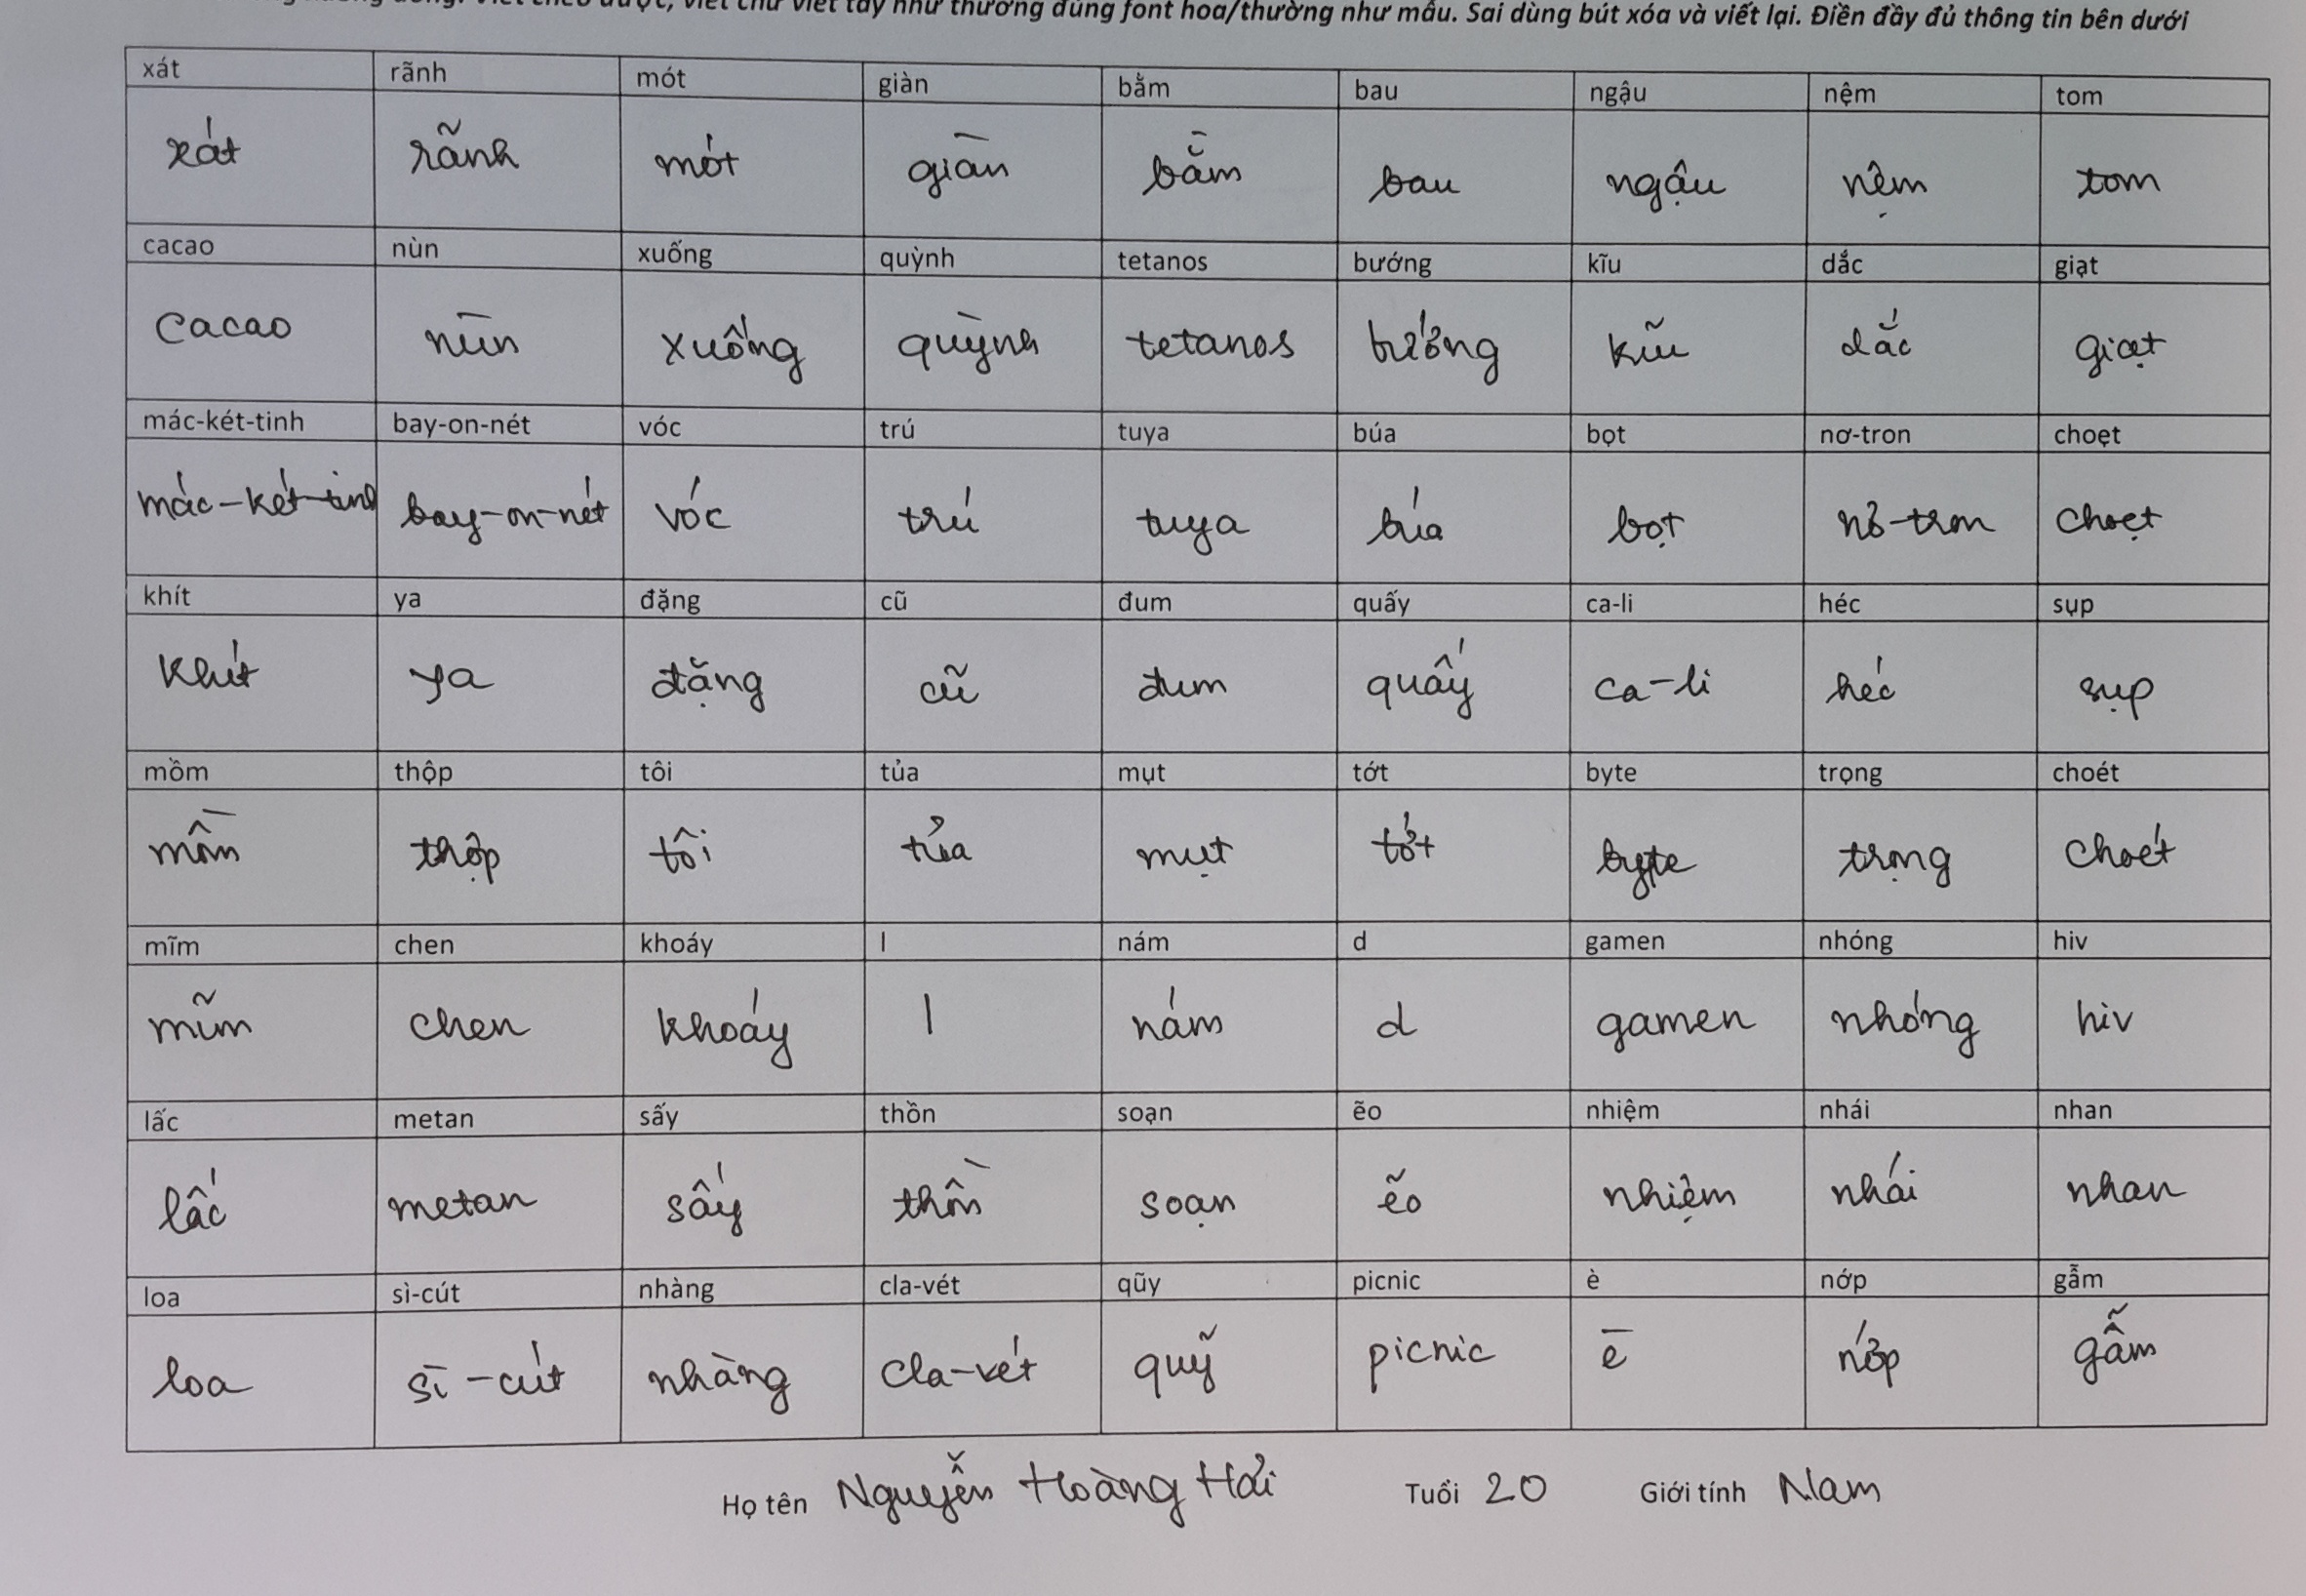 viết chữ viết tay như thường dùng font hoa/thường như mẫu. Sai dùng bút xóa và viết lại. Điền đầy đủ thông tin bên dưới
xát rãnh mót giàn bằm bau ngậu nệm tom
xát rãnh mót giàn bằm bau ngậu nệm tom
cacao nùn xuống quỳnh tetanos bướng kĩu dắc giạt
cacao nùn xuống quỳnh tetanos bướng kĩu dắc giạt
mác-két-tinh bay-on-nét vóc trú tuya búa bọt nơ-tron choẹt
mác-két-tinh bay-on-nét vóc trú tuya búa bọt nơ-tron choẹt
khít ya đặng cũ đum quấy ca-li héc sụp
khít ya đặng cũ đum quấy ca-li héc sụp
mồm thộp tôi tủa mụt tớt byte trọng choét
mồm thộp tôi tủa mụt tớt byte trọng choét
mĩm chen khoáy l nám d gamen nhóng hiv
mĩm chen khoáy l nám d gamen nhóng hiv
lấc metan sấy thồn soạn ẽo nhiệm nhái nhan
lấc metan sấy thồn soạn ẽo nhiệm nhái nhan
loa sì-cút nhàng cla-vét qũy picnic è nớp gẫm
loa sì-cút nhàng cla-vét quỹ picnic è nớp gẫm
Họ tên Nguyễn Hoàng Hải Tuổi 20 Giới tính Nam